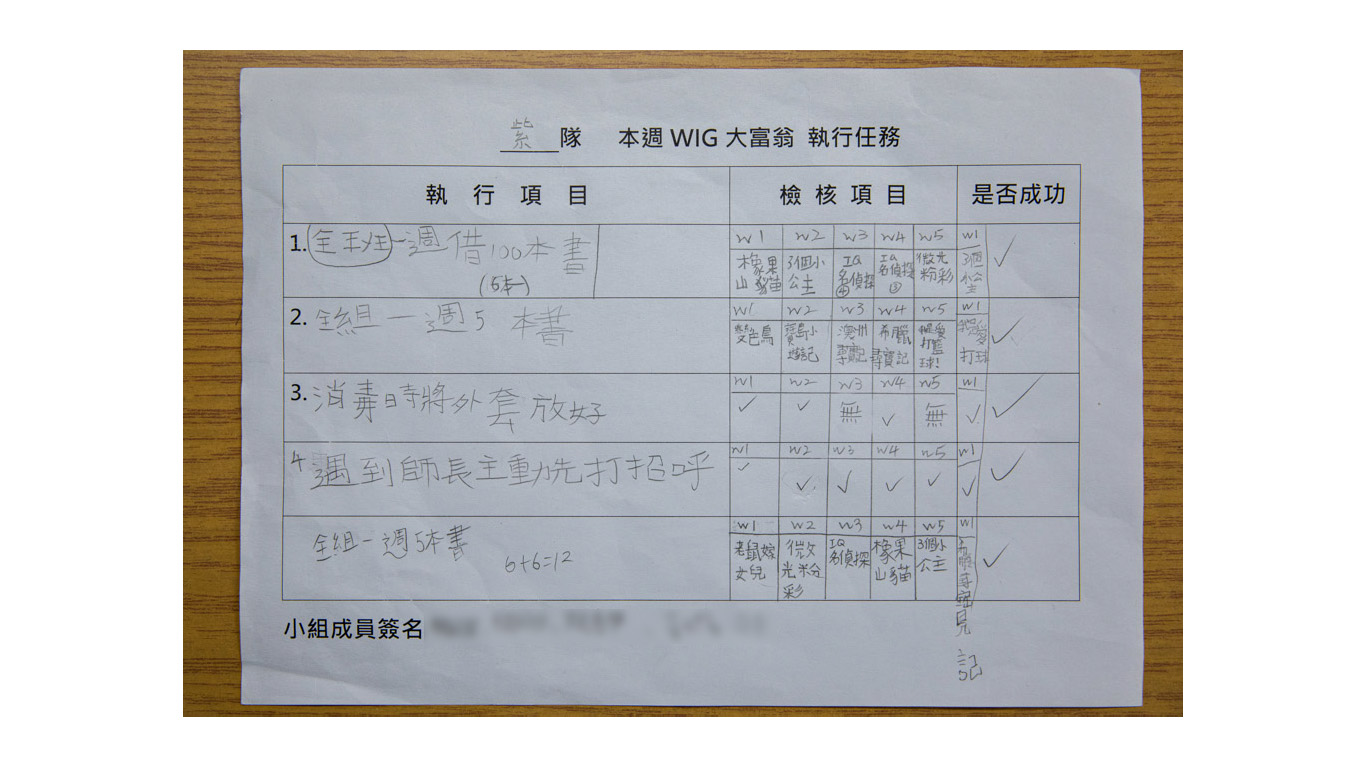 紫隊 本週WIG大富翁 執行任務
執行項目 檢核項目 是否成功
1. 全班一週借100本書
(5本一)
w1 w2 w3 w4 w5 w1
橡果山貓 3個小公主 IQ名偵探④ IQ名偵探③ 微光粉彩 3個小公主 ✓
2. 全組一週5本書
w1 w2 w3 w4 w5 w1
變色鳥 寶島小遊記 澳洲尋寶記 希臘尋寶記 打籃球! 打球 ✓
3. 消毒時將外套放好
w1 w2 w3 w4 w5 w1
✓ ✓ 無 ✓ 無 ✓ ✓
4 遇到師長主動先打招呼
w1 w2 w3 w4 w5 w1
✓ ✓ ✓ ✓ ✓ ✓ ✓
全組一週5本書
6+6=12
w1 w2 w3 w4 w5 w1
老鼠嫁女兒 微光粉彩 IQ名偵探 橡果山貓 3個小公主 ✓
小組成員簽名